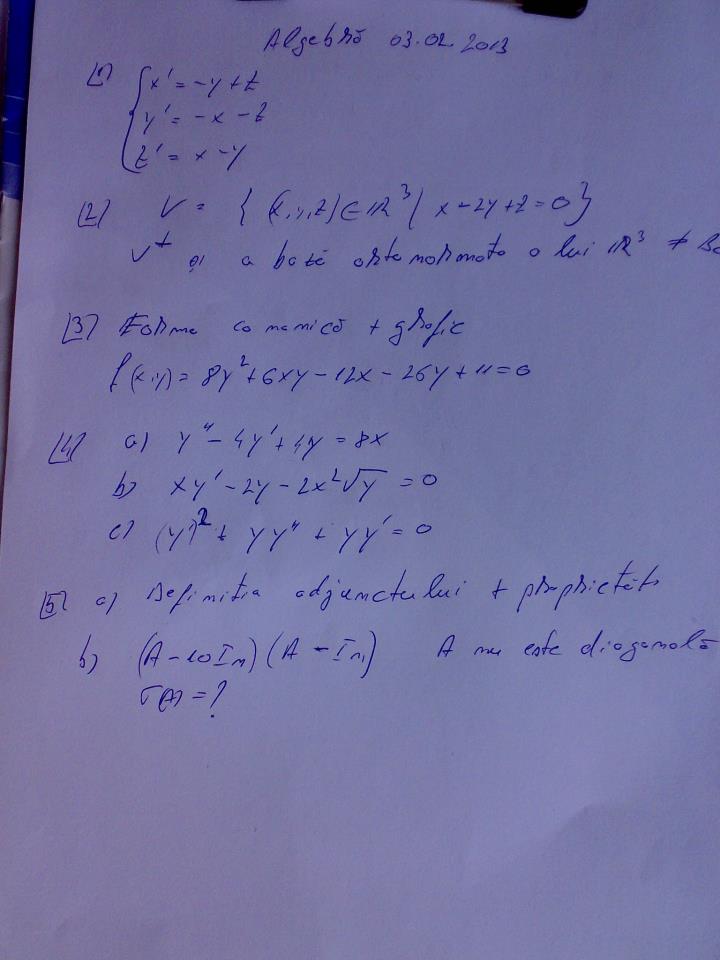 Algebră 03.02.2013
[1] x' = -y + z
y' = -x - z
z' = x - y
[2] V = { (x,y,z) ∈ ℝ³ | x - 2y + z = 0 }
V⊥ și o bază ortonormată a lui ℝ³ ≠ Bc
[3] Forma canonică + grafic
f(x,y) = 8y² + 6xy - 12x - 26y + 11 = 0
[4] a) y'' - 4y' + 4y = 8x
b) xy' - 2y - 2x²√y = 0
c) (y')² + yy'' + yy' = 0
[5] a) Definiția adjunctului + proprietăți
b) (A - 10In)(A - In) A nu este diagonală
σ(A) = ?